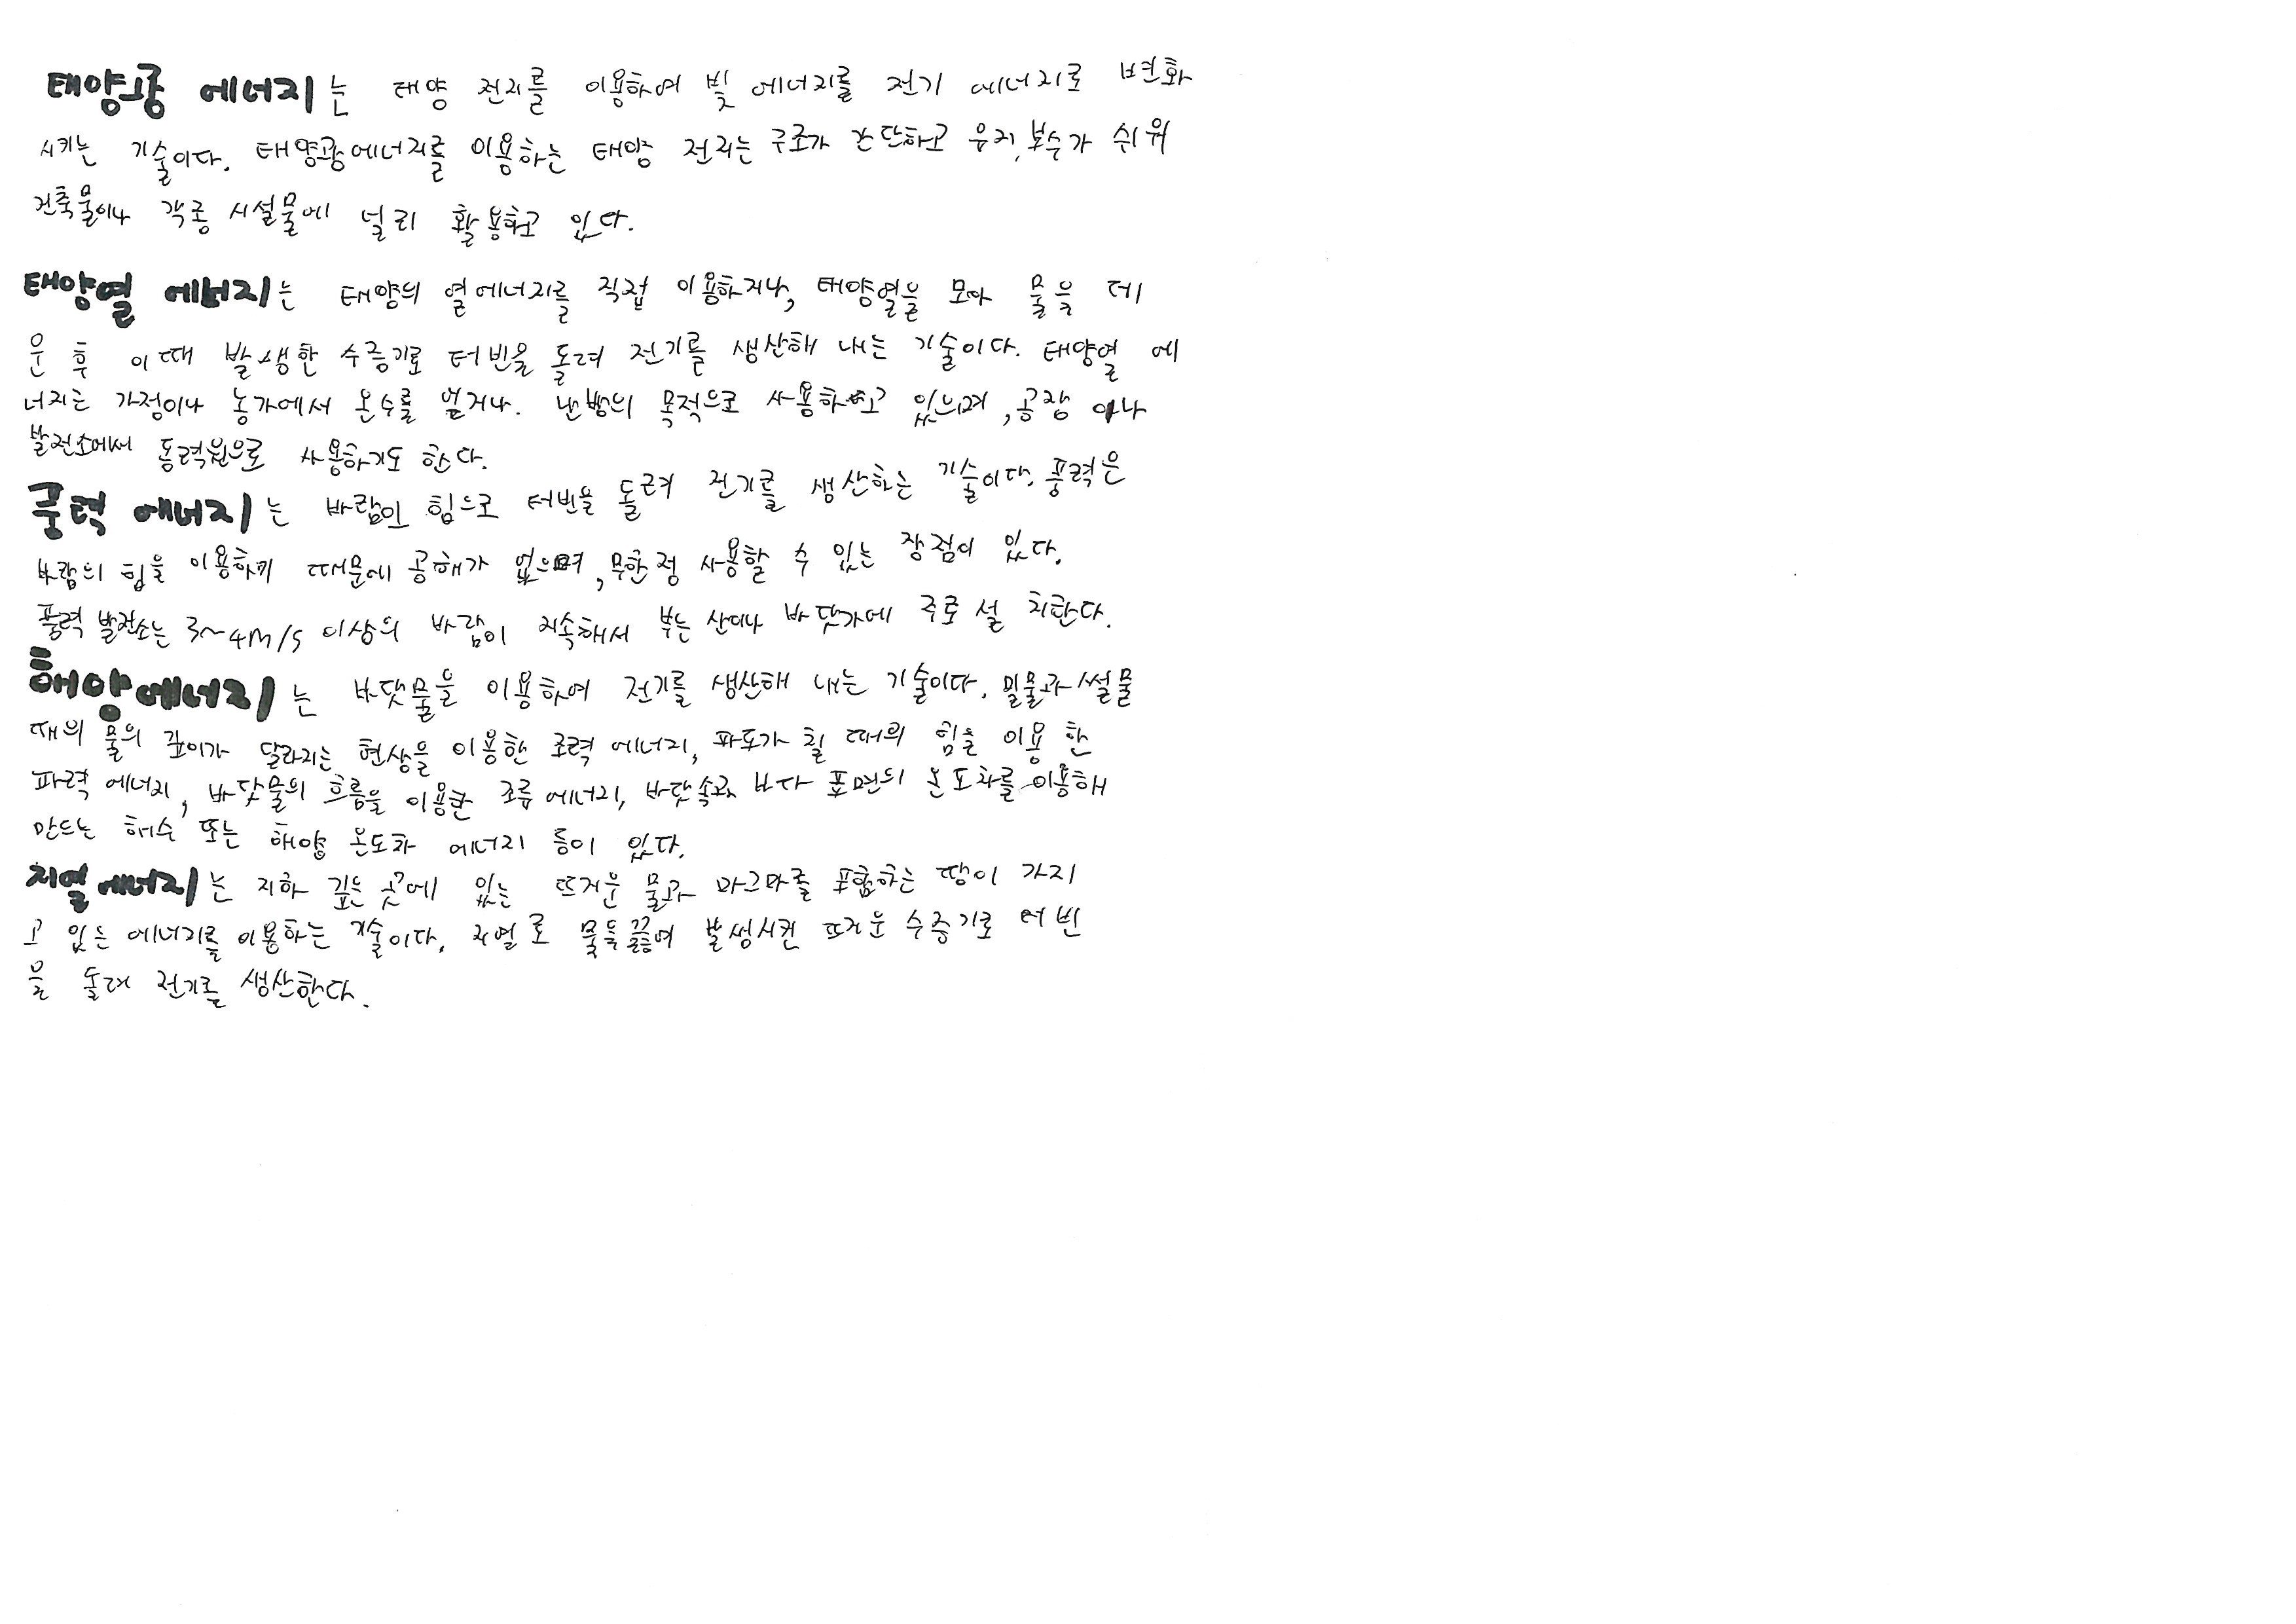 태양광 에너지는 태양 전지를 이용하여 빛 에너지를 전기 에너지로 변화
시키는 기술이다. 태양광에너지를 이용하는 태양 전지는 구조가 간단하고 유지, 보수가 쉬워
건축물이나 각종 시설물에 널리 활용하고 있다.
태양열 에너지는 태양의 열에너지를 직접 이용하거나, 태양열을 모아 물을 데
운 후 이때 발생한 수증기로 터빈을 돌려 전기를 생산해 내는 기술이다. 태양열 에
너지는 가정이나 농가에서 온수를 얻거나. 난방의 목적으로 사용하고 있으며, 공장 이나
발전소에서 동력원으로 사용하기도 한다.
풍력 에너지는 바람의 힘으로 터빈을 돌려 전기를 생산하는 기술이다. 풍력은
바람의 힘을 이용하기 때문에 공해가 없으며, 무한정 사용할 수 있는 장점이 있다.
풍력 발전소는 3~4m/s 이상의 바람이 지속해서 부는 산이나 바닷가에 주로 설 치한다.
해양에너지는 바닷물을 이용하여 전기를 생산해 내는 기술이다. 밀물과 썰물
때의 물의 깊이가 달라지는 현상을 이용한 조력 에너지, 파도가 칠 때의 힘을 이용 한
파력 에너지, 바닷물의 흐름을 이용한 조류 에너지, 바닷속과 바다 표면의 온도차를 이용해
만드는 해수 또는 해양 온도차 에너지 등이 있다.
지열에너지는 지하 깊은 곳에 있는 뜨거운 물과 마그마를 포함하는 땅이 가지
고 있는 에너지를 이용하는 기술이다. 지열로 물을 끓여 발생시킨 뜨거운 수증기로 터빈
을 돌려 전기를 생산한다.